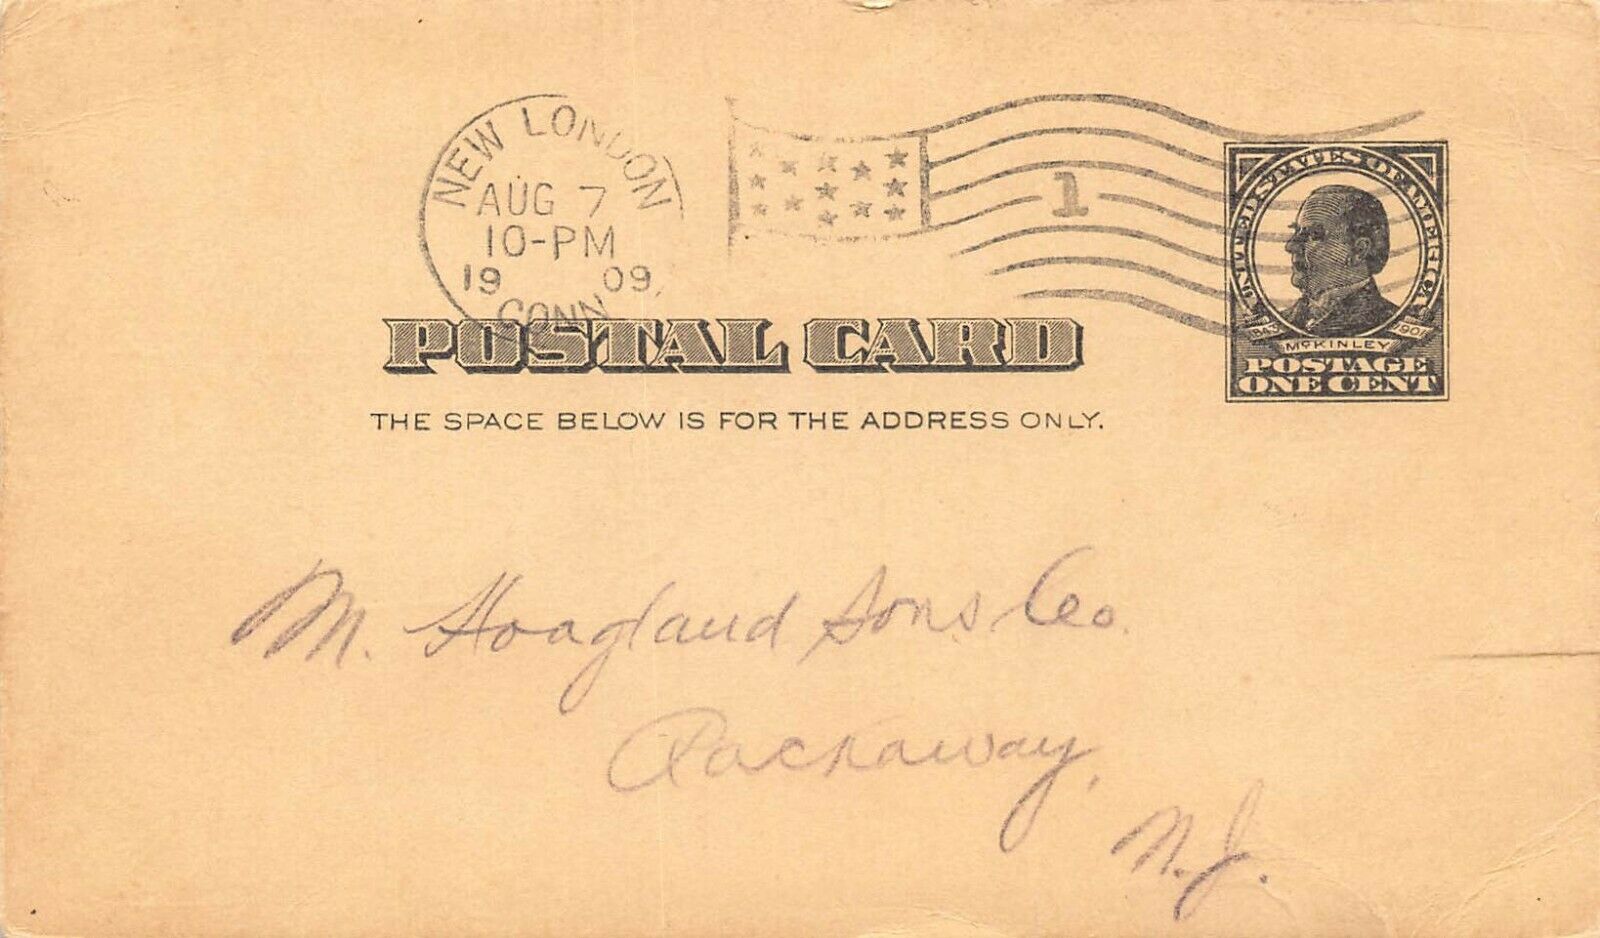 NEW LONDON
AUG 7
10-PM
19 09
CONN
1
UNITED STATES OF AMERICA
1843 1901
McKINLEY
POSTAGE
ONE CENT
POSTAL CARD
THE SPACE BELOW IS FOR THE ADDRESS ONLY.
M. Hoagland Sons Co.
Rockaway,
N.J.